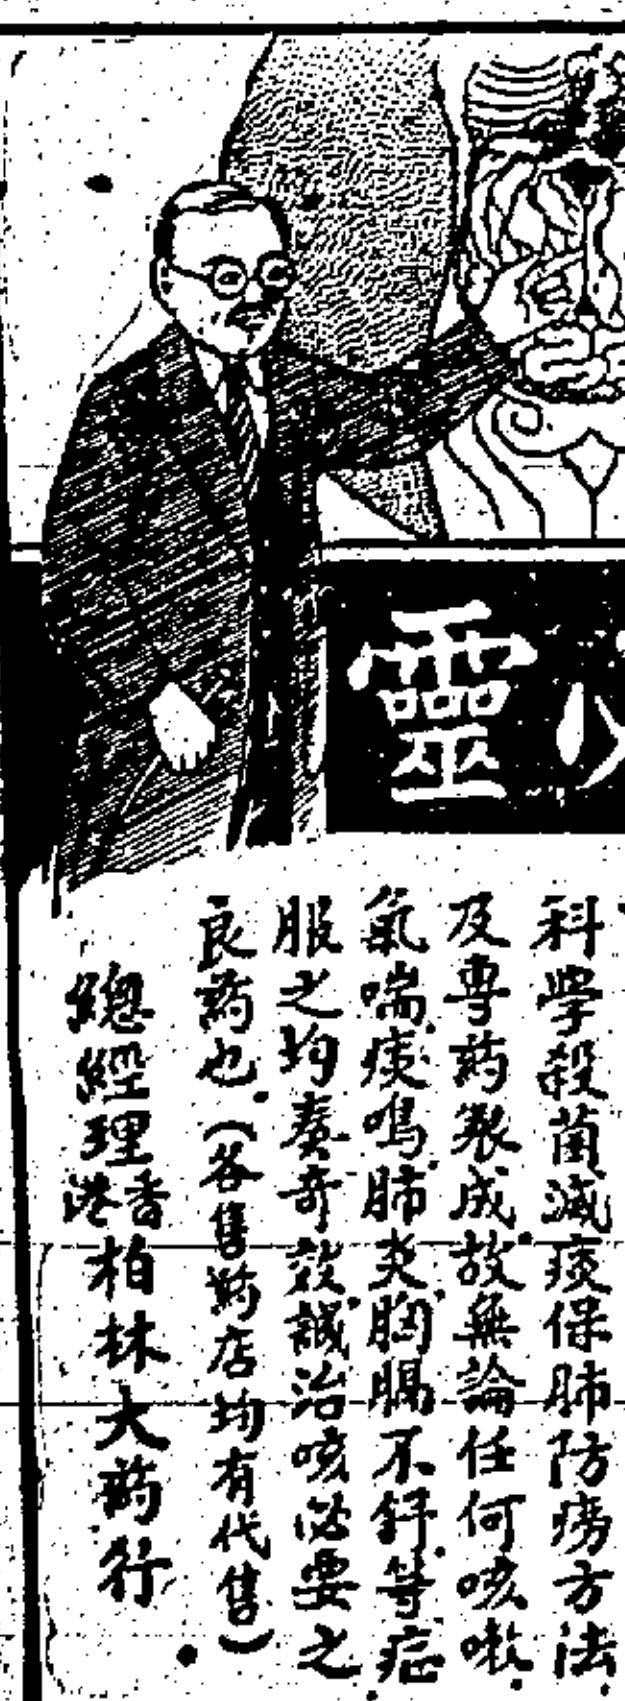 靈
科學殺菌減痰保肺防癆方法.
及專药製成.故無論任何咳嗽.
氣喘.痰鳴.肺炎.胸膈不舒.等症.
服之均奏奇效.誠治咳必要之
良药也.(各售药店均有代售).
總經理香港柏林大药行